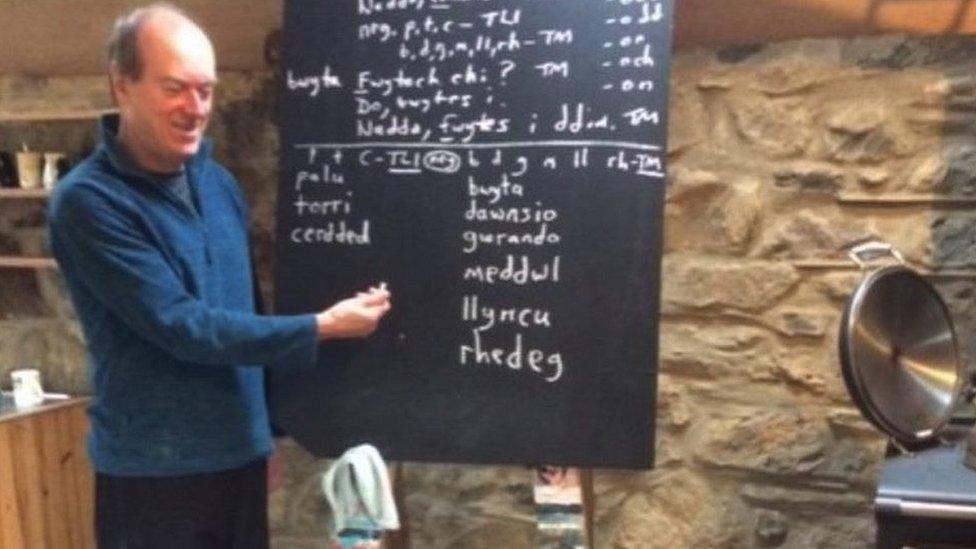 Nadda, - odd
neg. p,t,c - TLl - on
b,d,g,m,ll,rh - TM - och
bwyta Fwytoch chi? TM - on
Do, bwytes i.
Nadda, fwytes i ddim. TM
P, t C-TLl neg b d g m ll rh-TM
palu bwyta
torri dawnsio
cerdded gwrando
meddwl
llyncu
rhedeg